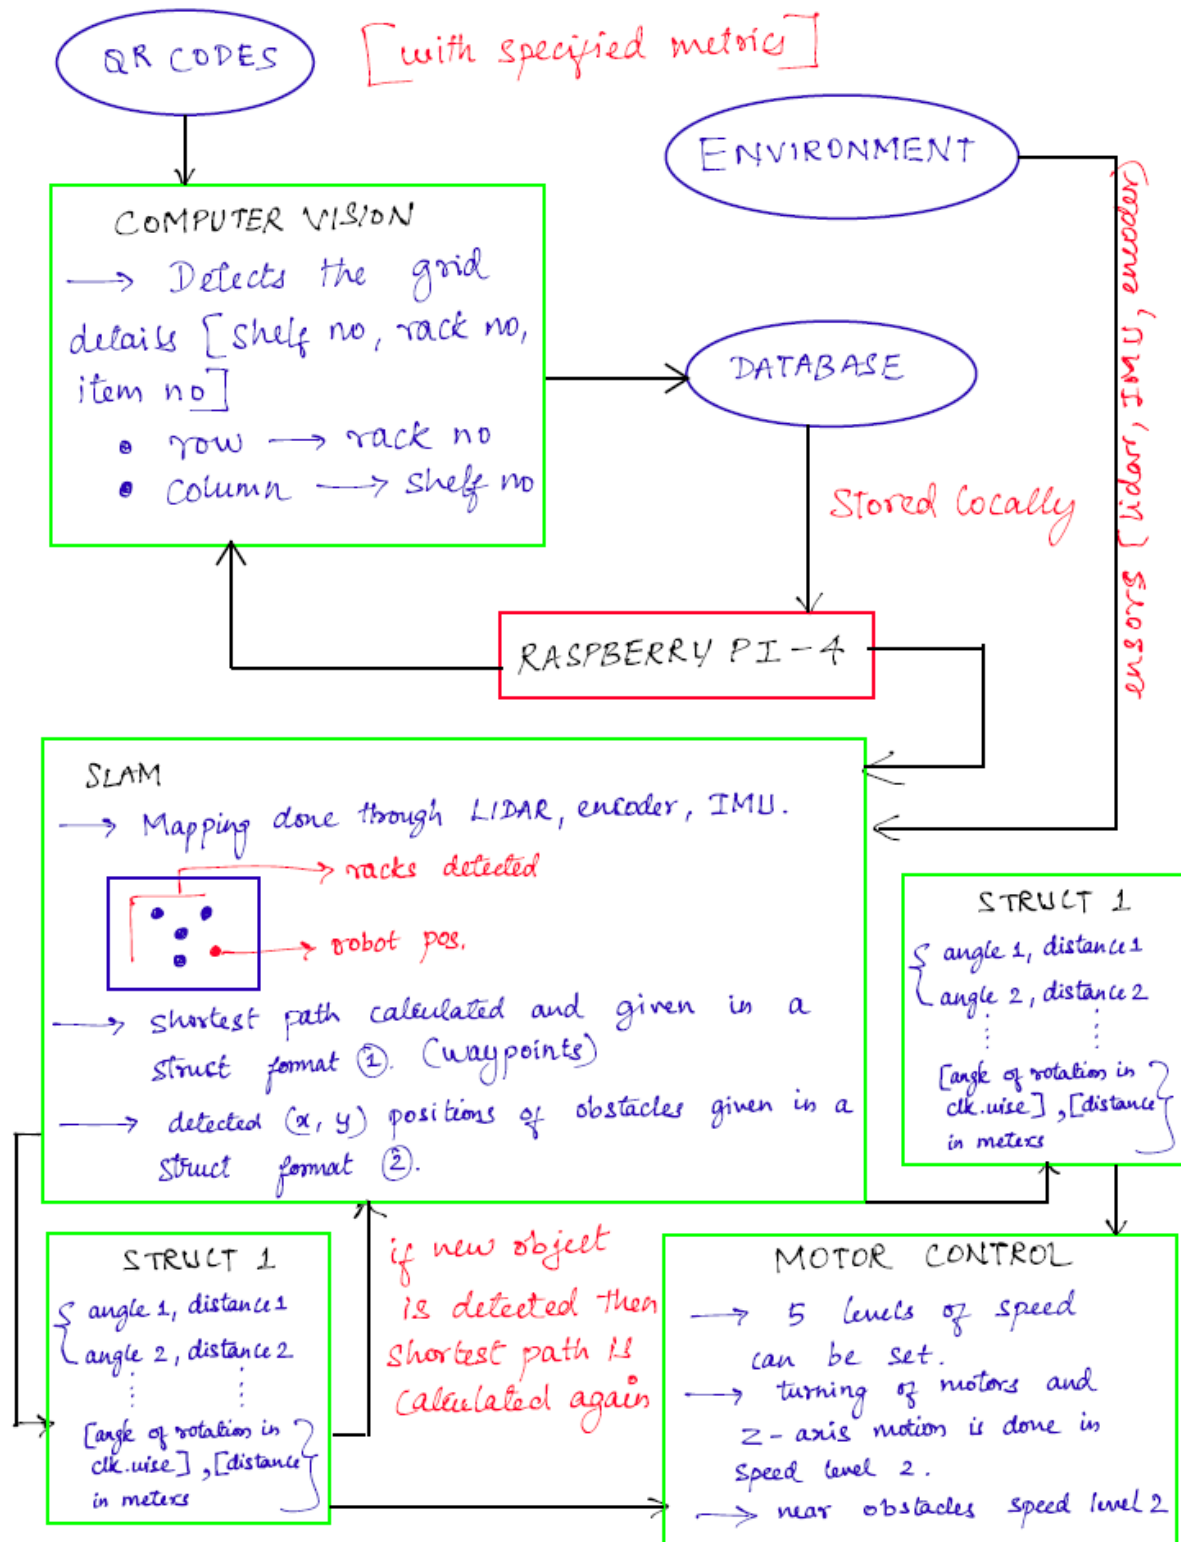 QR CODES
[with specified metrics]
ENVIRONMENT
ensors (lidar, IMU, encoder)
COMPUTER VISION
→ Detects the grid
details [shelf no, rack no,
item no]
• row → rack no
• column → shelf no
DATABASE
Stored locally
RASPBERRY PI-4
SLAM
→ Mapping done through LIDAR, encoder, IMU.
→ racks detected
→ robot pos.
→ shortest path calculated and given in a
struct format ①. (waypoints)
→ detected (x, y) positions of obstacles given in a
struct format ②.
STRUCT 1
{ angle 1, distance 1
angle 2, distance 2
⋮ ⋮
[angle of rotation in
clk.wise], [distance
in meters }
STRUCT 1
{ angle 1, distance 1
angle 2, distance 2
⋮ ⋮
[angle of rotation in
clk.wise], [distance
in meters }
if new object
is detected then
shortest path is
calculated again
MOTOR CONTROL
→ 5 levels of speed
can be set.
→ turning of motors and
z-axis motion is done in
speed level 2.
→ near obstacles speed level 2